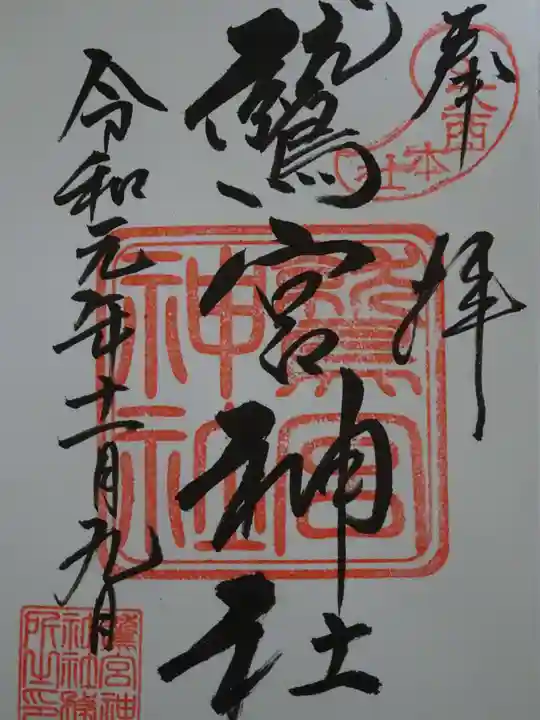 奉拝
鷲宮神社
令和元年十一月九日
大酉
本社
鷲宮
神社
鷲宮神
社社務
所之印